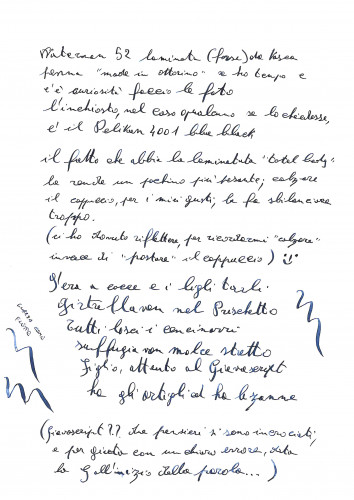 Waterman 52 laminata (forse) da Kasea
penna "made in ottorino" se ho tempo e
c'è curiosità faccio le foto
l'inchiostro, nel caso qualcuno se lo chiedesse,
è il Pelikan 4001 blue black
il fatto che abbia la laminatura "total body"
la rende un pochino più pesante; calzare
il cappuccio, per i miei gusti, la fa sbilanciare
troppo.
(ci ho dovuto riflettere, per ricordarmi "calzare"
invece di "postare" il cappuccio)
S'era a cocce e i ligli tarli
girtrellavan nel Puschetto
Tutti losci i cencinarri
suffuggian non molce stetto
Figlio, attento al Giavascript
ha gli artigli ed ha le zanne
(Giavascript?? due pensieri si sono incrociati,
e per giunta con un chiaro errore, data
la G all'inizio della parola...)